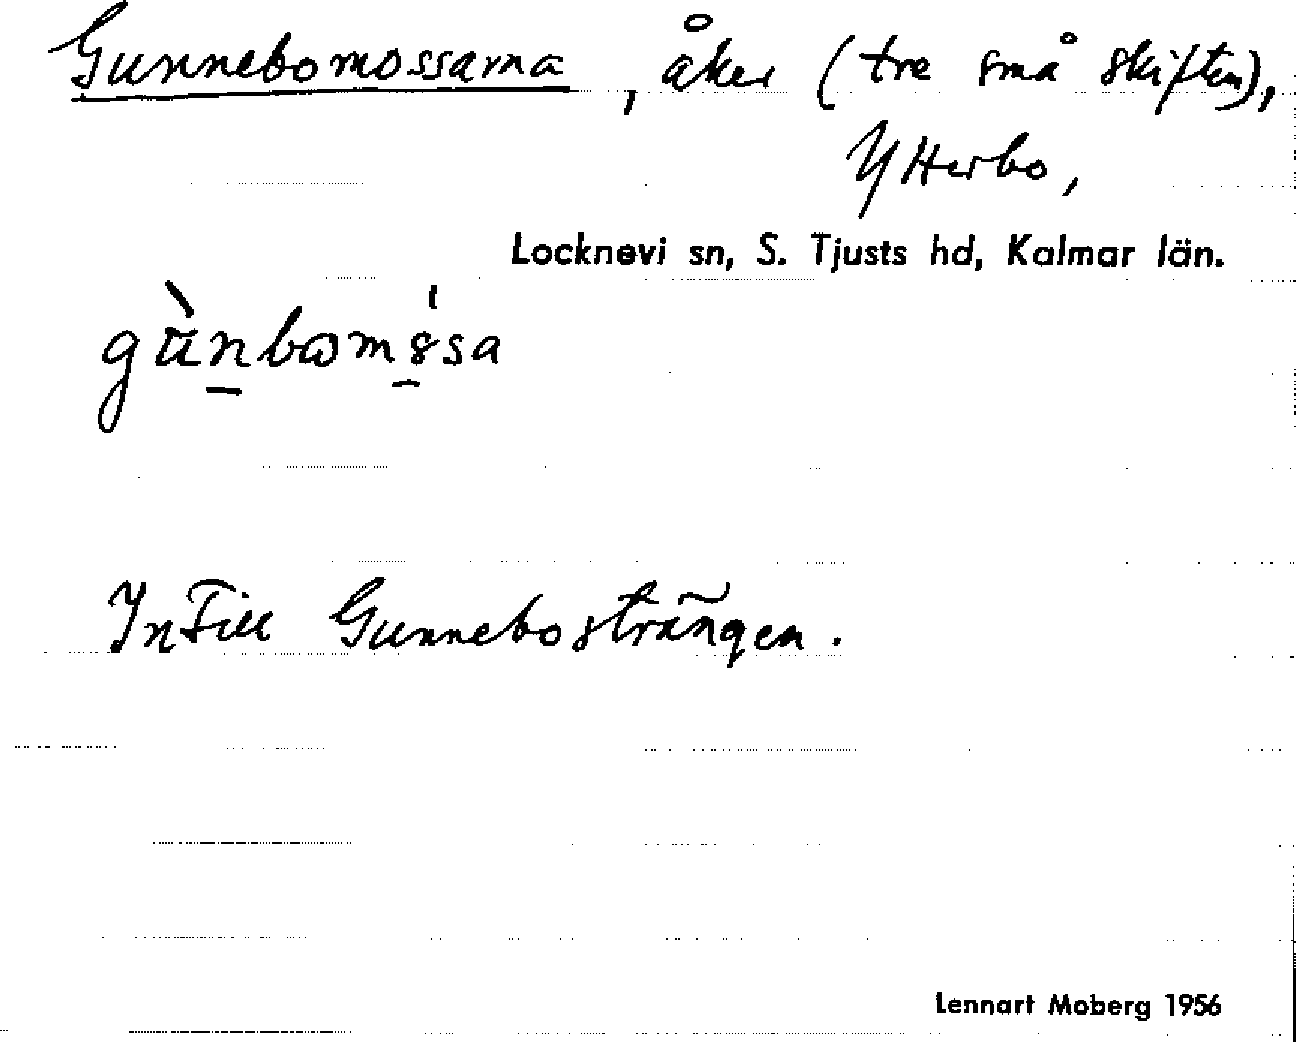 Gunnebomossarna, åker (tre små skiften),
Ytterbo,
Locknevi sn, S. Tjusts hd, Kalmar län.
Intill Gunnebosträngen.
Lennart Moberg 1956